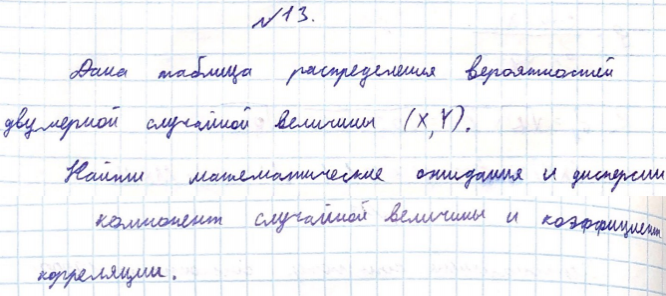 №13.
Дана таблица распределения вероятностей
двумерной случайной величины (X,Y).
Найти математические ожидания и дисперсии
компонент случайной величины и коэффициент
корреляции.